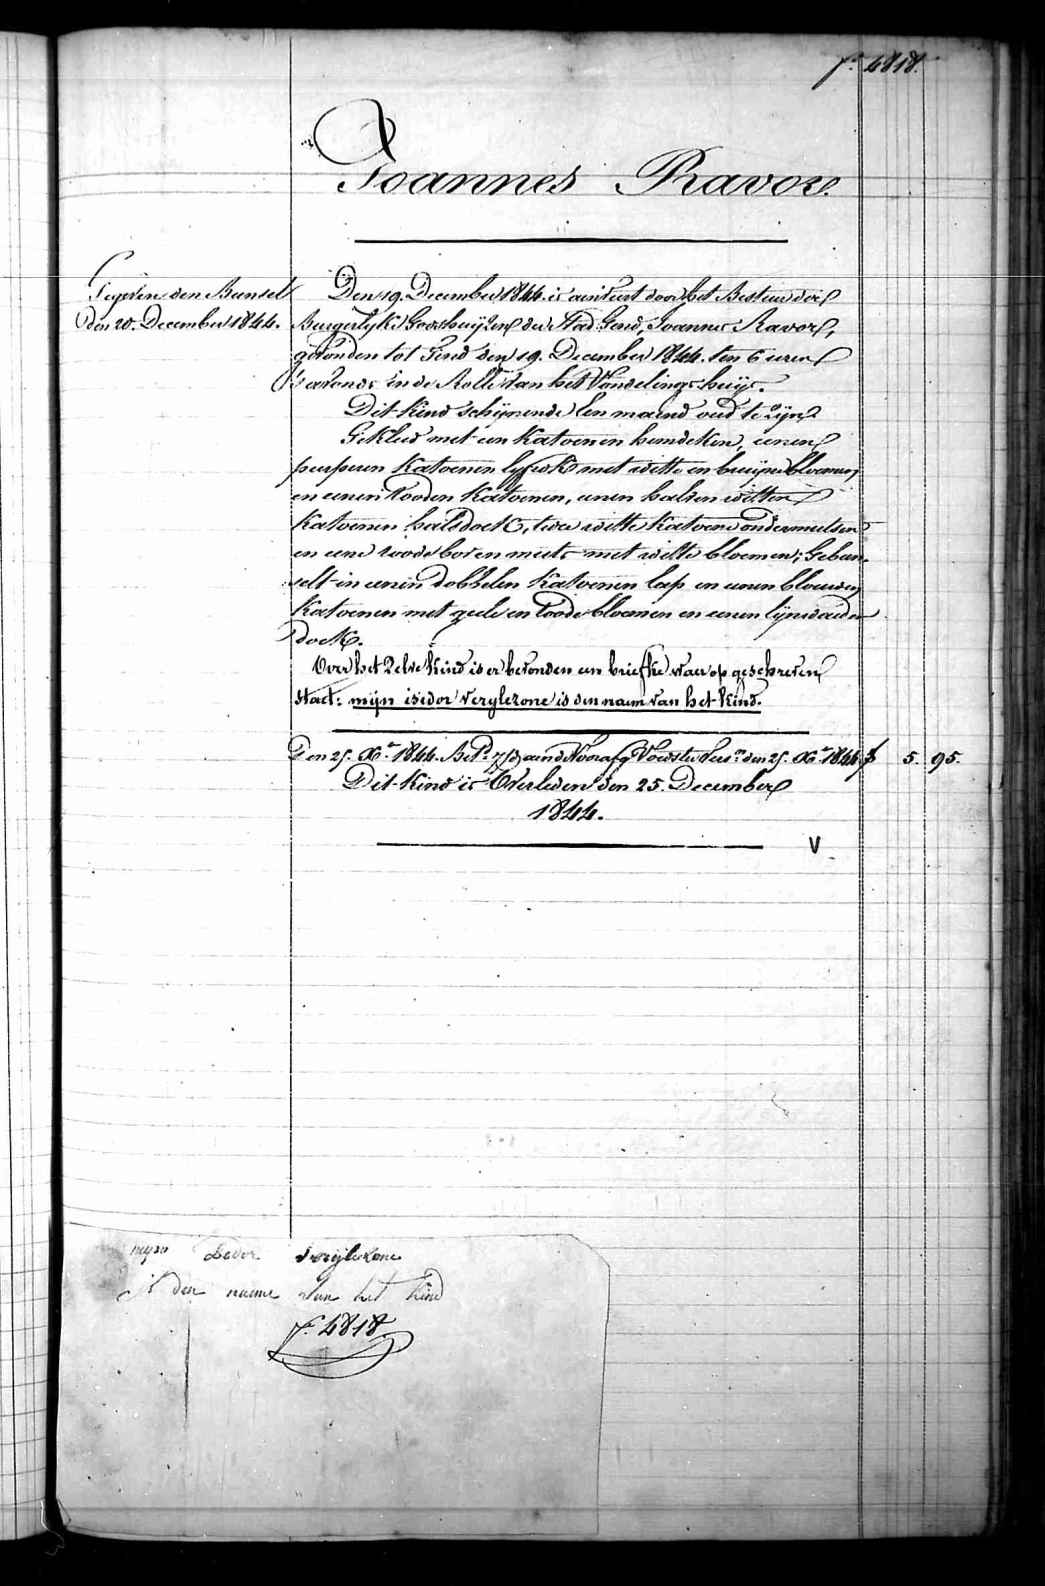 fo. 4818.
Joannes Ravor.
Gegeven den Bunsel
den 20. December 1844.
Den 19. December 1844. is aenveert door het Bestuer der
Burgerlyke Godshuyzen der Stad Gend, Joannes Ravor,
gevonden tot Gend den 19. December 1844. ten 6 uren
's avonds in de Rolle van het Vondelingshuys.
Dit kind schynende een maend oud te zyn
Gekleed met een Katoenen hemdeken, eenen
purperen Katoenen lyfrok met witte en bruyne bloemen,
en eenen rooden Katoenen, eenen halven witten
Katoenen halsdoek, twee witte Katoene ondermutsen
en eene roode boven muts met witte bloemen; Gebun-
selt in eenen dobbelen Katoenen lap en eenen blauwen
Katoenen met geele en roode bloemen en eenen lynwaeden
doek.
Over het zelve kind is er bevonden een briefke waer op geschreven
staet: mijn isedor verglezone is den naem van het kind.
Den 25. Xr. 1844. den 25. Xr. 1844. f 5. 95.
Dit kind is Overleden den 25. December
1844.
V
myn isedor verglezone
is den naeme van het kind
fo. 4818